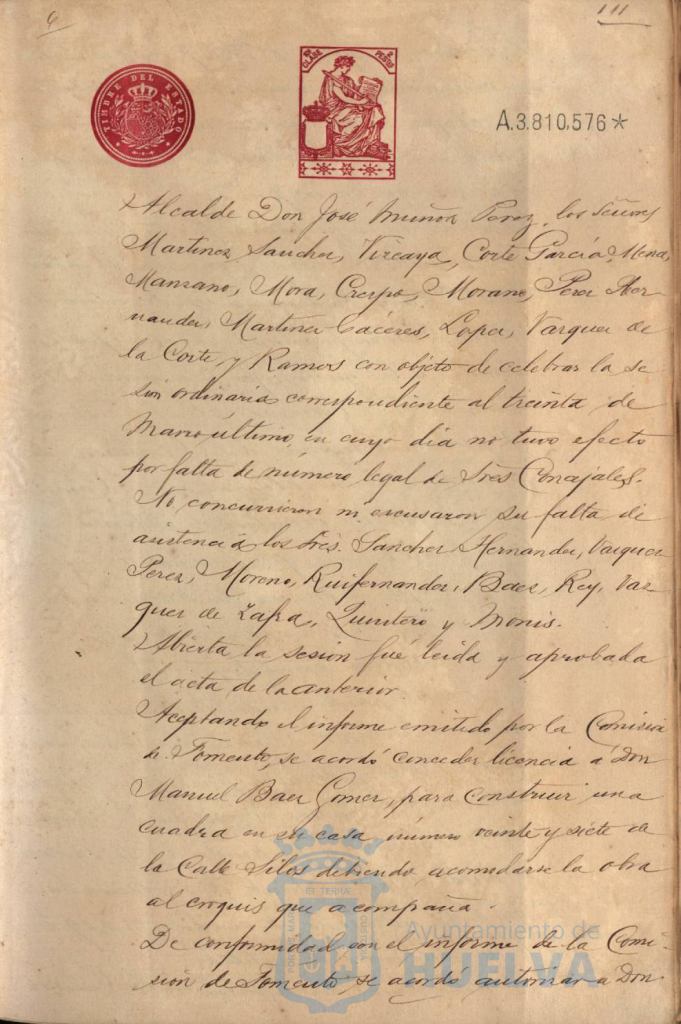 6
111
TIMBRE DEL ESTADO
CLASE
2 PESETAS
A.3.810.576*
Alcalde Don José Muñoz Perez, los Señores
Martinez Sanchez, Vizcaya, Corte Garcia, Mena,
Manzano, Mora, Crespo, Morano, Perez Her-
nandez, Martinez Cáceres, Lopez, Vazquez de
la Corte y Ramos con objeto de celebrar la se
sion ordinaria correspondiente al treinta de
Marzo último, en cuyo dia no tuvo efecto
por falta de número legal de Sres Concejales.
No concurrieron ni escusaron su falta de
asistencia los Sres. Sanchez Hernandez, Vazquez
Perez, Moreno, Ruifernandez, Baez, Rey, Vaz-
quez de Zafra, Quintero y Monis.
Abierta la sesion fué leida y aprobada
el acta de la anterior.
Aceptando el informe emitido por la Comision
de Fomento, se acordó conceder licencia á Don
Manuel Baez Gomez, para construir una
cuadra en su casa número veinte y siete de
la Calle Silos debiendo acomodarse la obra
al croquis que acompaña.
De conformidad con el informe de la Comi-
sion de Fomento, se acordó autorizar a Don
Ayuntamiento de
HUELVA